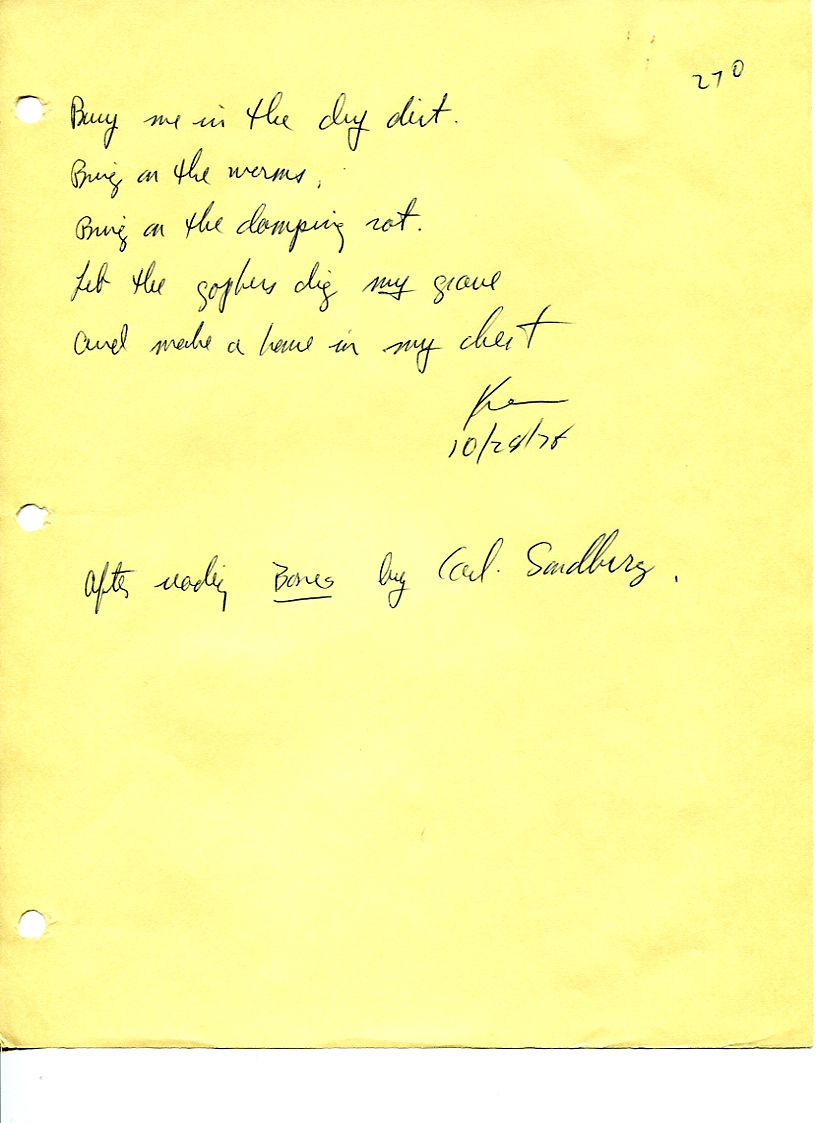 270
Bury me in the dry dirt.
Bring on the worms,
Bring on the damping rot.
Let the gophers dig my grave
and make a home in my chest
Ken
After reading Bones by Carl Sandberg.